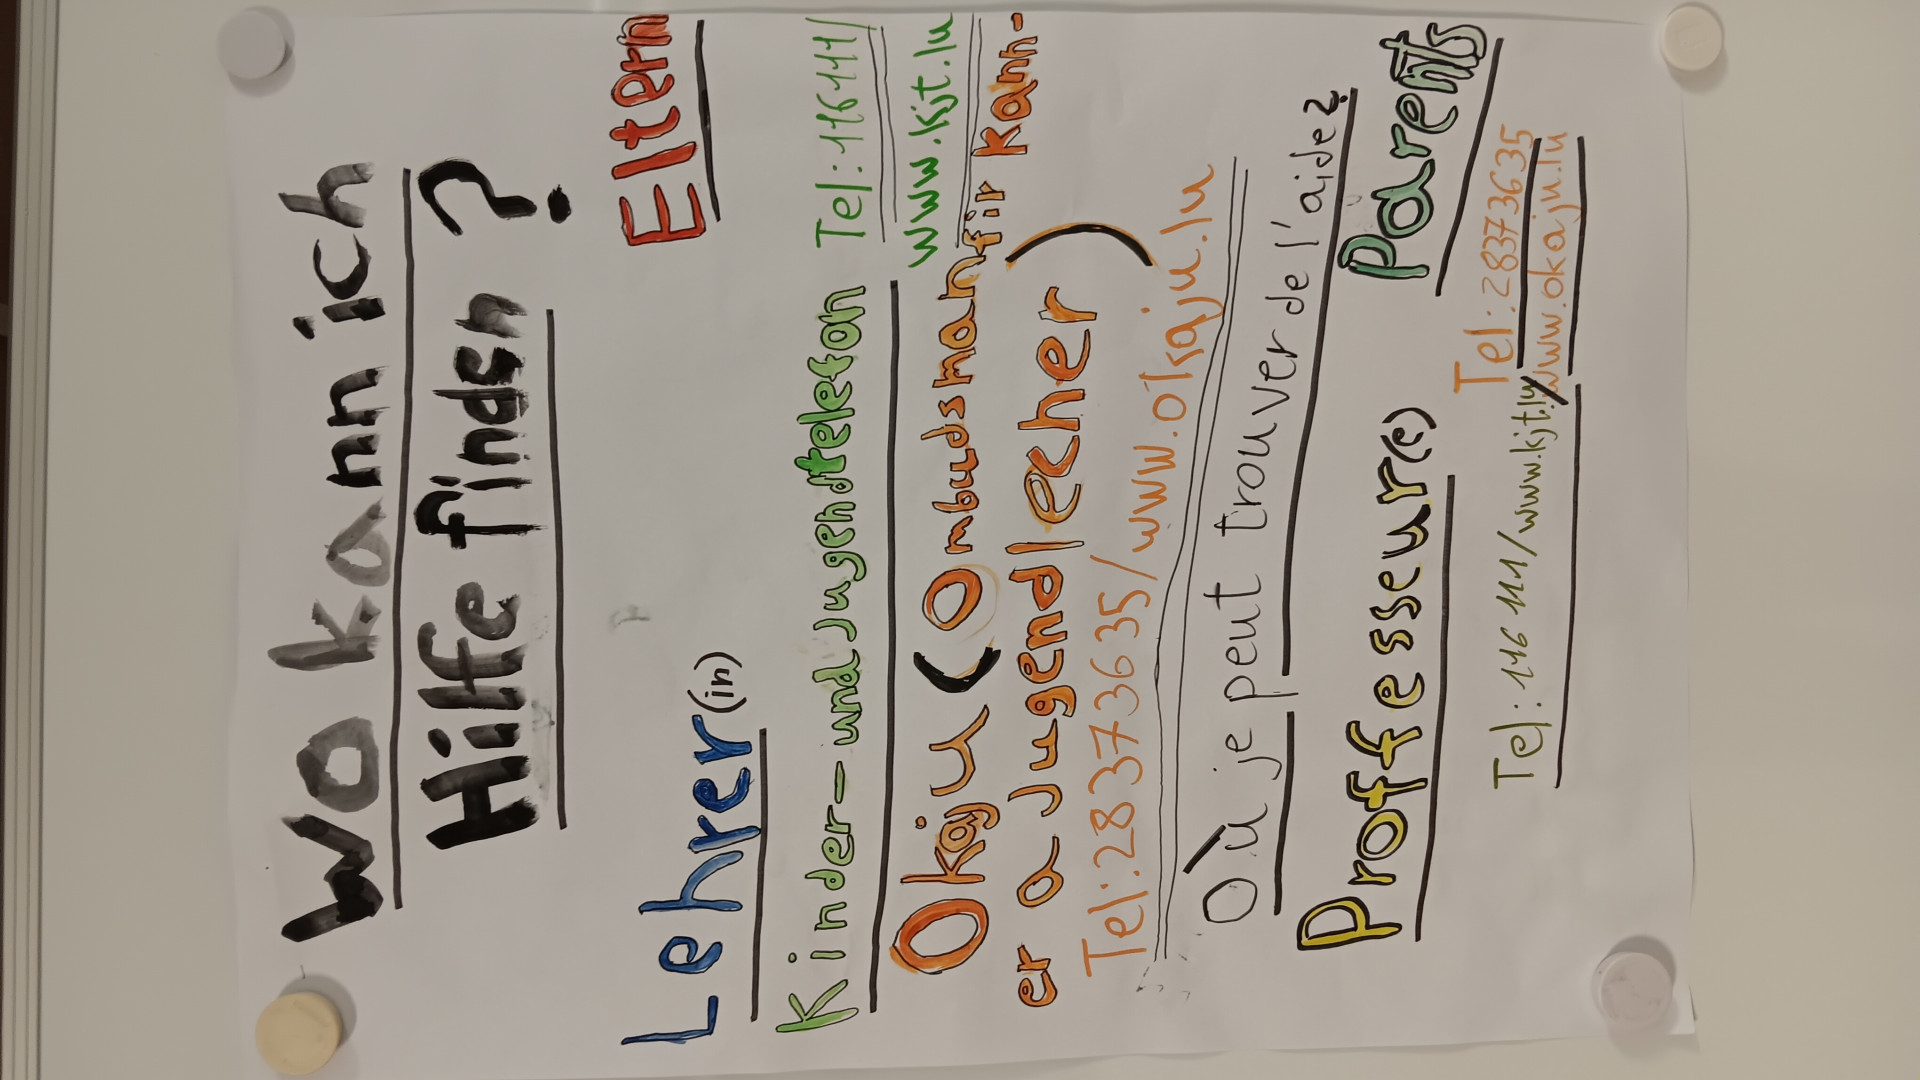 Wo kann ich
Hilfe finden ?
Lehrer(in) Eltern
Kinder- und Jugendtelefon Tel: 116111/
www.kjt.lu
Okaju (Ombudsman fir Kann-
er a Jugendlecher)
Tel.: 28373635/www.okaju.lu
Où je peut trouver de l'aide?
Proffesseur(e) Parents
Tel: 28373635
Tel: 116 111/www.kjt.lu/www.okaju.lu